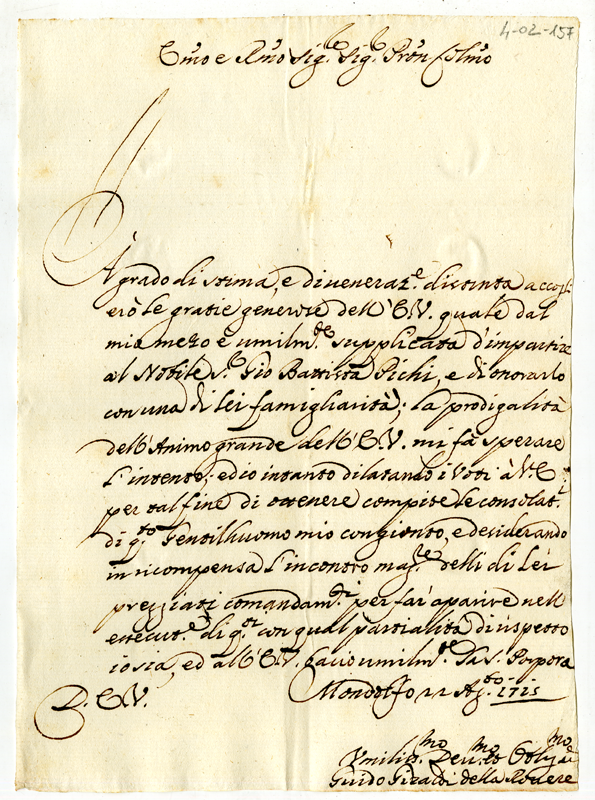 4-02-157
Em̃o e Rm̃o Sig.re Sig.r Pron̄ Colm̃o
A grado di stima, e di veneraz.e distinta accogl-
erò le gratie generose dell'E.V. quale dal
mio mezo è umilm.te supplicata d'impartire
al Nobile S.r Gio Battista Pichi, e di onorarlo
con una di lei famigliarità; la prodigalità
dell'Animo grande dell'E.V. mi fà sperare
l'intento; ed io intanto dilatando i Voti à V.E.
per tal fine di ottenere compite le consolat.i
di q.to Gentilhuomo mio congionto, e desiderando
in ricompensa l'incontro mag.re delli di Lei
preggiati comandam.ti per far' aparire nell'
essecut.e di q.ti con qual partialità di rispetto
io sia, ed all'E.V. bacio umilm.te la S. Porpora
D. E.V.
Mondolfo 22 Ag.to 1715
Vmiliss.mo Deu.mo Obl.mo
Guido Giraldi della Rouere